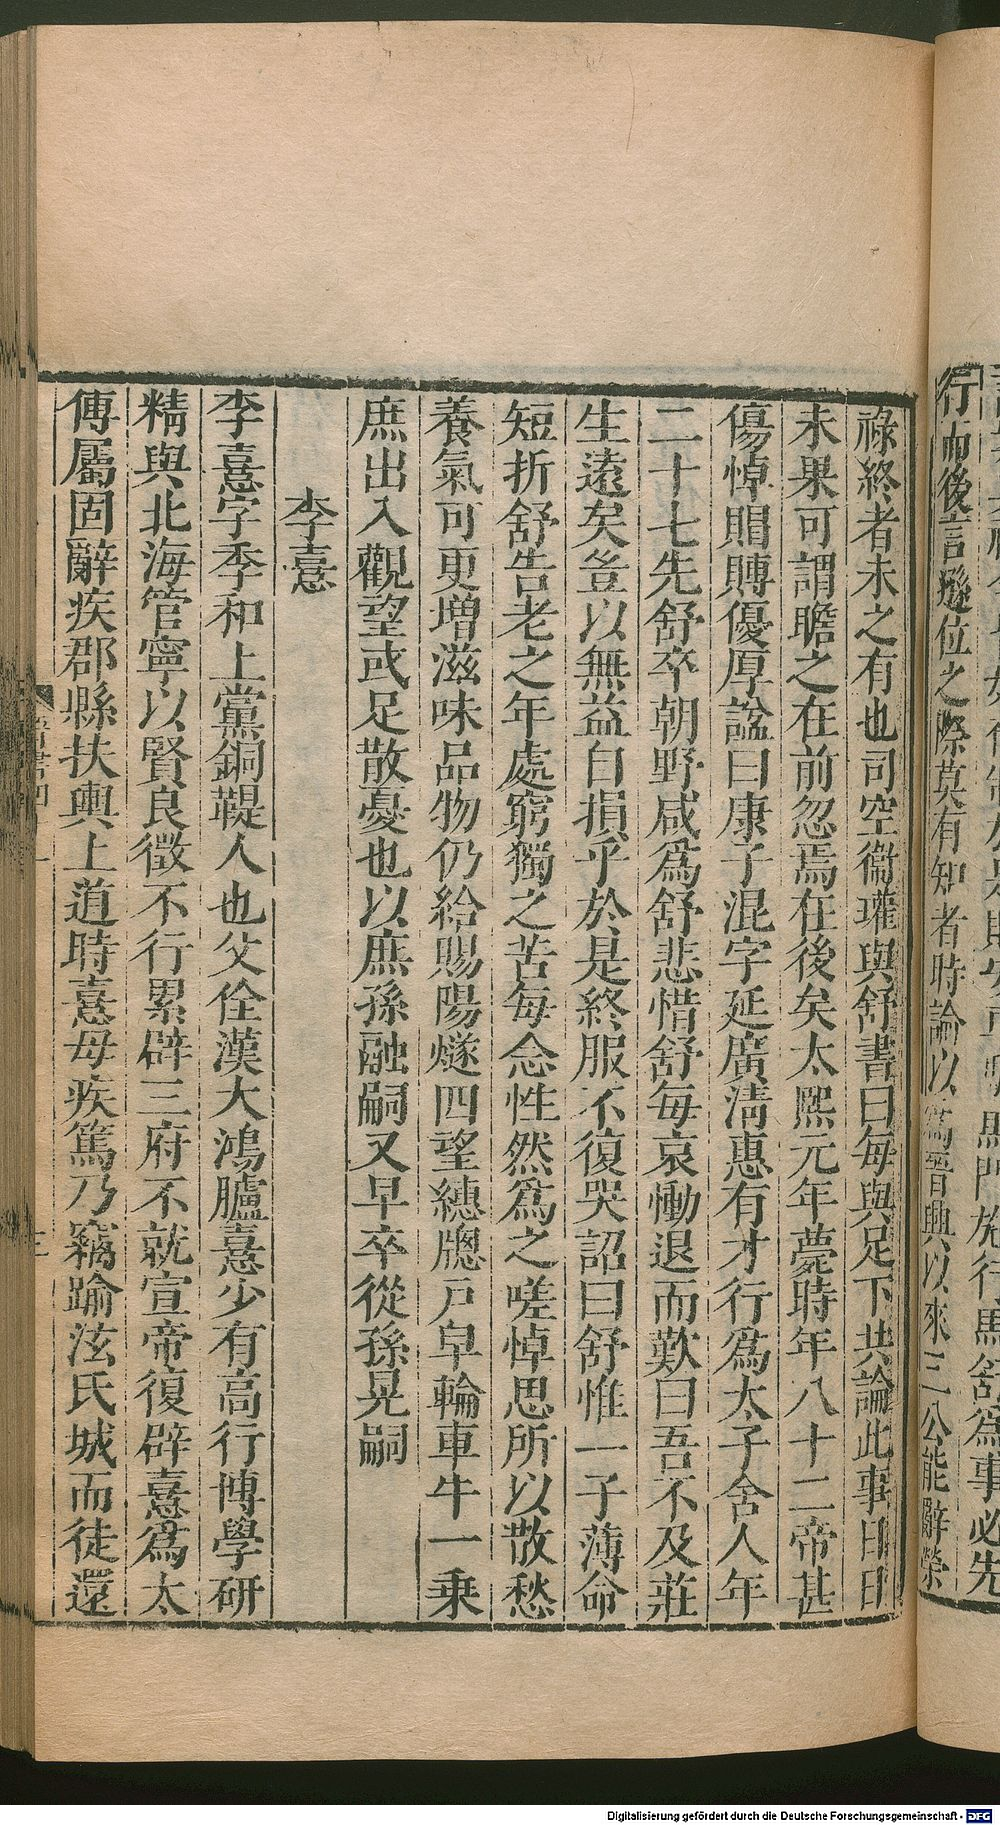 行而後言遜位之際莫有知者時論以爲晉興以來三公能辭榮
祿終者未之有也司空衞瓘與舒書曰每與足下共論此事日日
未果可謂瞻之在前忽焉在後矣太熙元年薨時年八十二帝甚
傷悼賵賻優厚諡曰康子混字延廣淸惠有才行爲太子舍人年
二十七先舒卒朝野咸爲舒悲惜舒每哀慟退而歎曰吾不及莊
生遠矣豈以無益自損乎於是終服不復哭詔曰舒惟一子薄命
短折舒告老之年處窮獨之苦每念怛然爲之嗟悼思所以散愁
養氣可更增滋味品物仍給賜陽燧四望繐牕戶皁輪車牛一乗
庶出入觀望或足散憂也以庶孫融嗣又早卒從孫晃嗣
李憙
李憙字季和上黨銅鞮人也父佺漢大鴻臚憙少有高行博學研
精與北海管寧以賢良徵不行累辟三府不就宣帝復辟憙爲太
傅屬固辭疾郡縣扶輿上道時憙母疾篤乃竊踰泫氏城而徒還
Digitalisierung gefördert durch die Deutsche Forschungsgemeinschaft - DFG